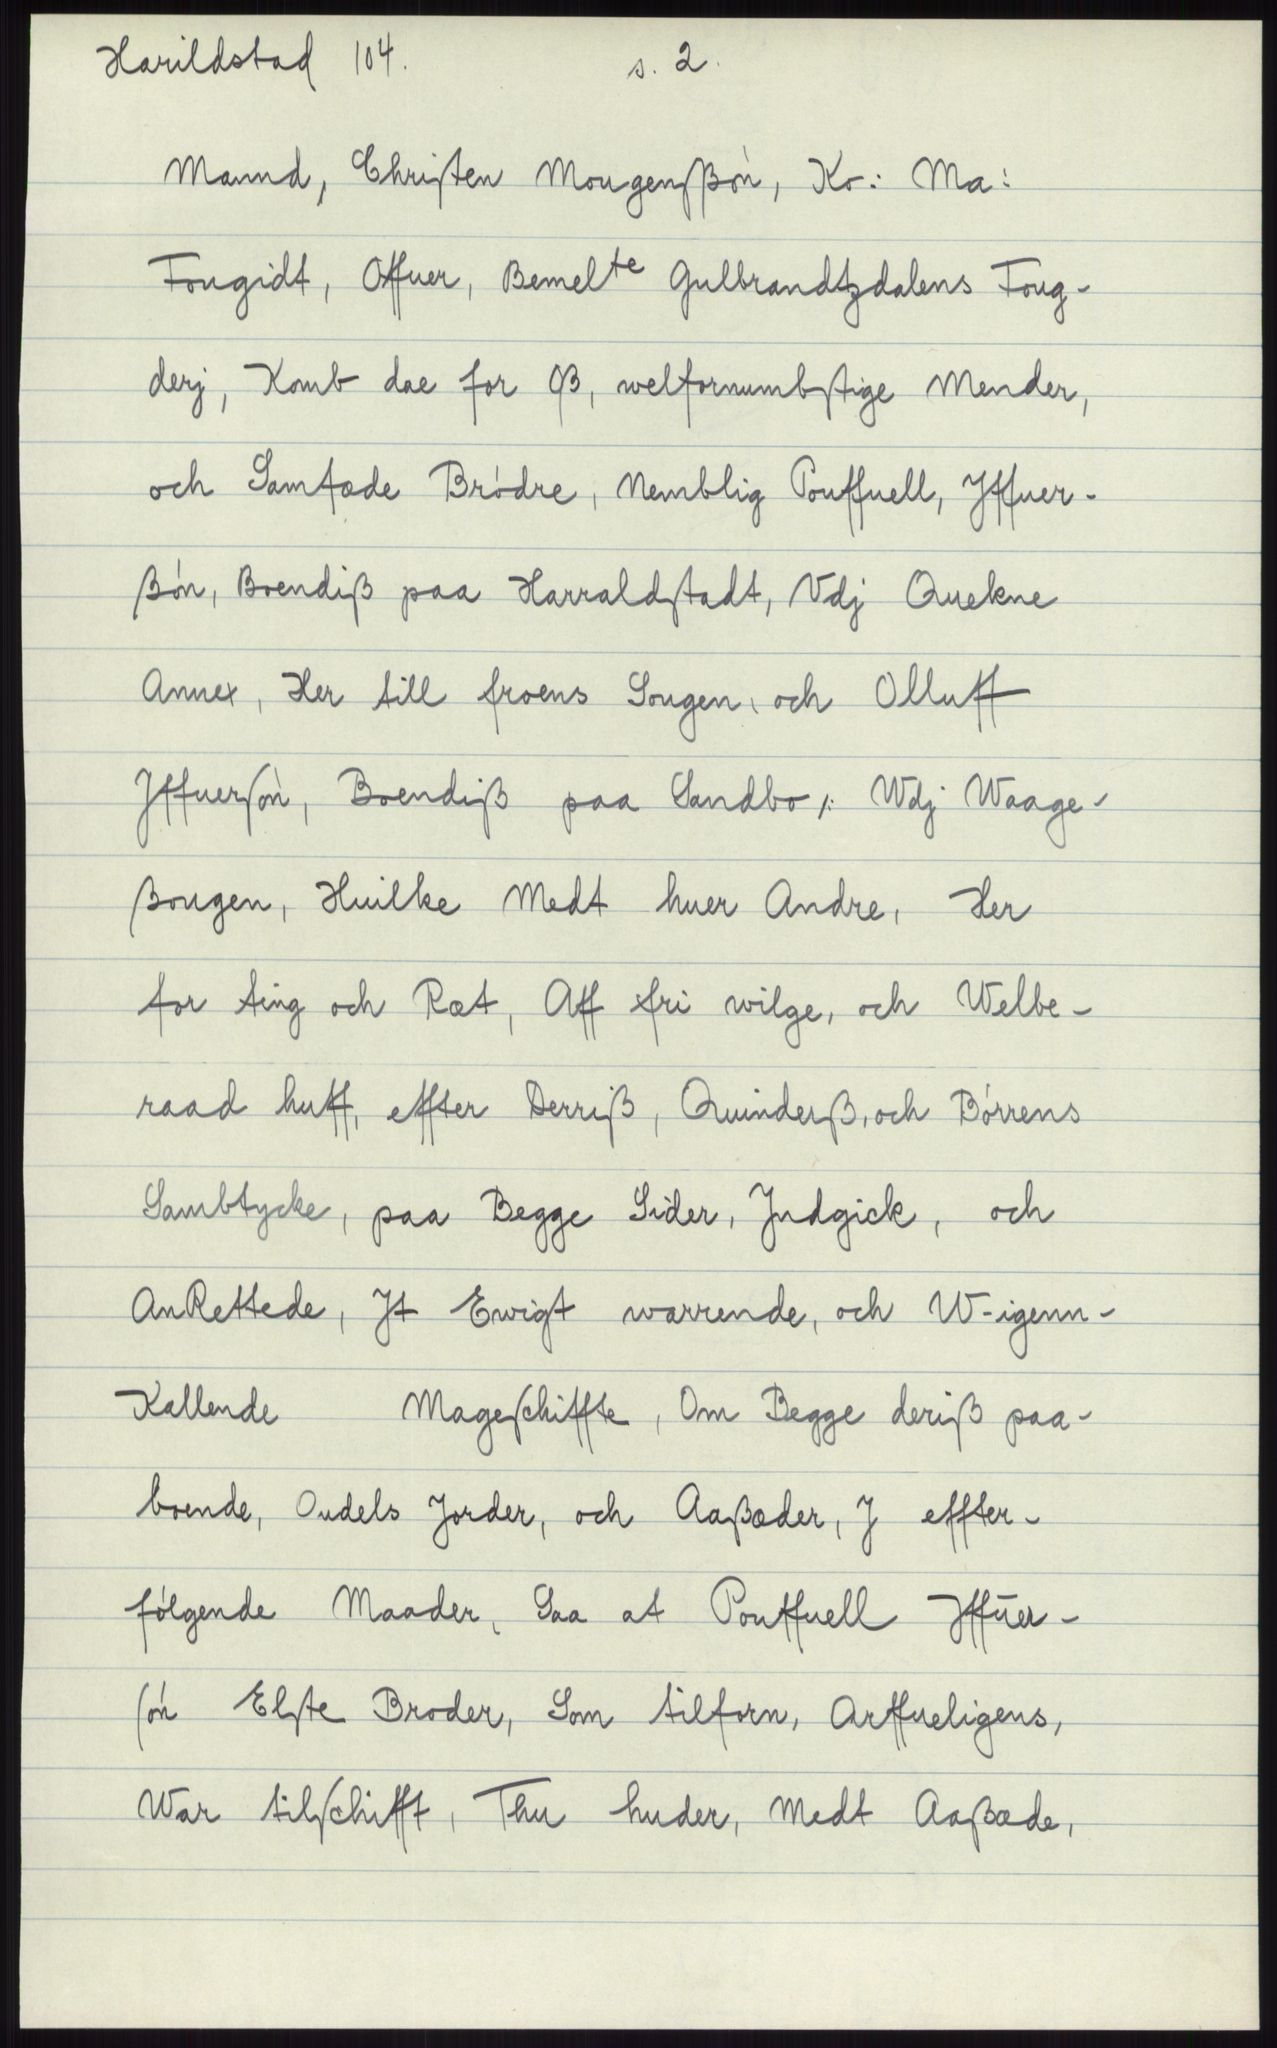 Harildstad 104. s. 2.
Mannd, Christen Mougenßøn, Ko: Ma:
Fougidt, Offuer, Bemelte Gulbrandtzdalens Foug-
derj, Komb dae for Oß, welfornumbstige Mender,
och Samfæde Brødre, Nemblig Pouffuell, Jffuer-
ßøn, Boendiß paa Harraldstadt, Vdj Quekne
Annex, Her till froens Sougen, och Olluff
Jffuersøn, Boendiß paa Sandbo /: Wdj Waage-
ßougen, Huilke Medt huer Andre, Her
for ting och Ræt, Aff fri wilge, och Welbe-
raad huff, effter Derriß, Quinderß, och Børrens
Sambtycke, paa Begge Sider, Jndgick, och
AnRettede, Jt Ewigt warrende, och W-igenn-
Kallende Mageschiffte, Om Begge deriß paa-
boende, Oudels Jorder, och Aaßæder, J effter-
følgende Maader, Saa at Pouffuell Jffuer-
søn Elste Broder, Som tilforn, Arffueligens,
War tilschifft, Thu huder, Medt Aaßæde,